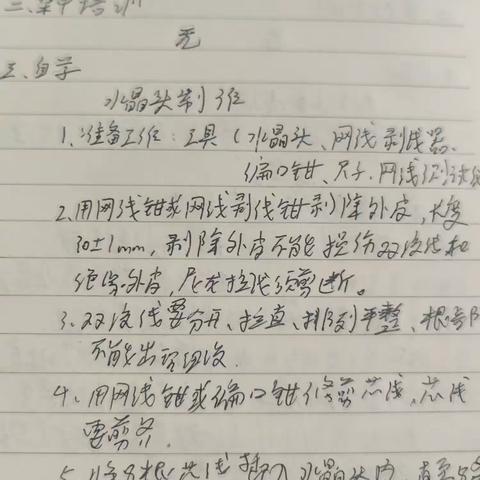 二、集中培训
无
三、自学
水晶头制作
1、准备工作：工具（水晶头、网线剥线器、
偏口钳、尺子、网线测试
2、用网线钳或网线剥线钳剥除外皮，长度
30±1mm，剥除外皮不能损伤双绞线和
绝缘外皮，尼龙拉线须剪断。
3、双绞线要分开、拉直、排列平整、根部
不能出现
4、用网线钳或偏口钳修剪芯线，芯线
要剪齐.
5、将8根芯线插入水晶头内，直至